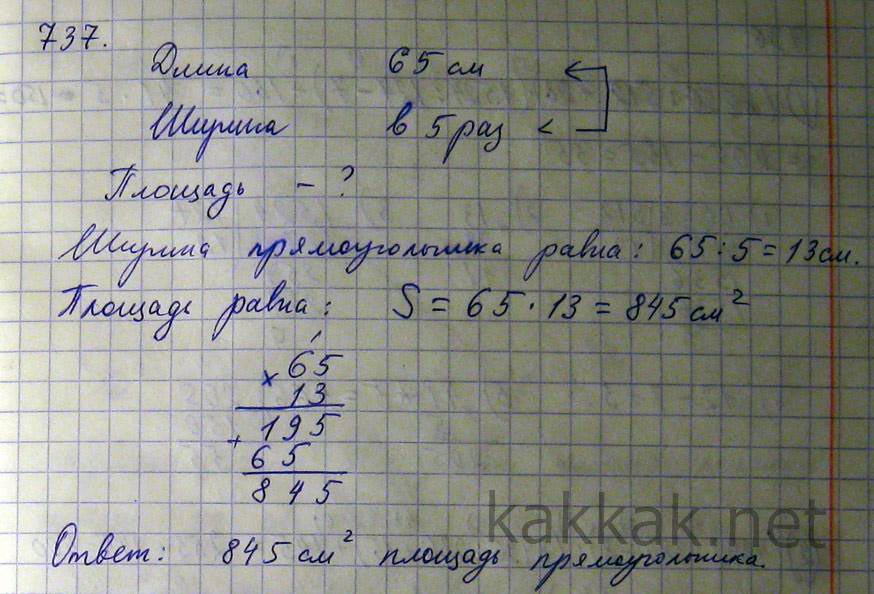 737.
Длина 65 см
Ширина в 5 раз <
Площадь - ?
Ширина прямоугольника равна: 65 : 5 = 13 см.
Площадь равна: S = 65 · 13 = 845 см²
× 65
13
195
+ 65
845
kakkak.net
Ответ: 845 см² площадь прямоугольника.